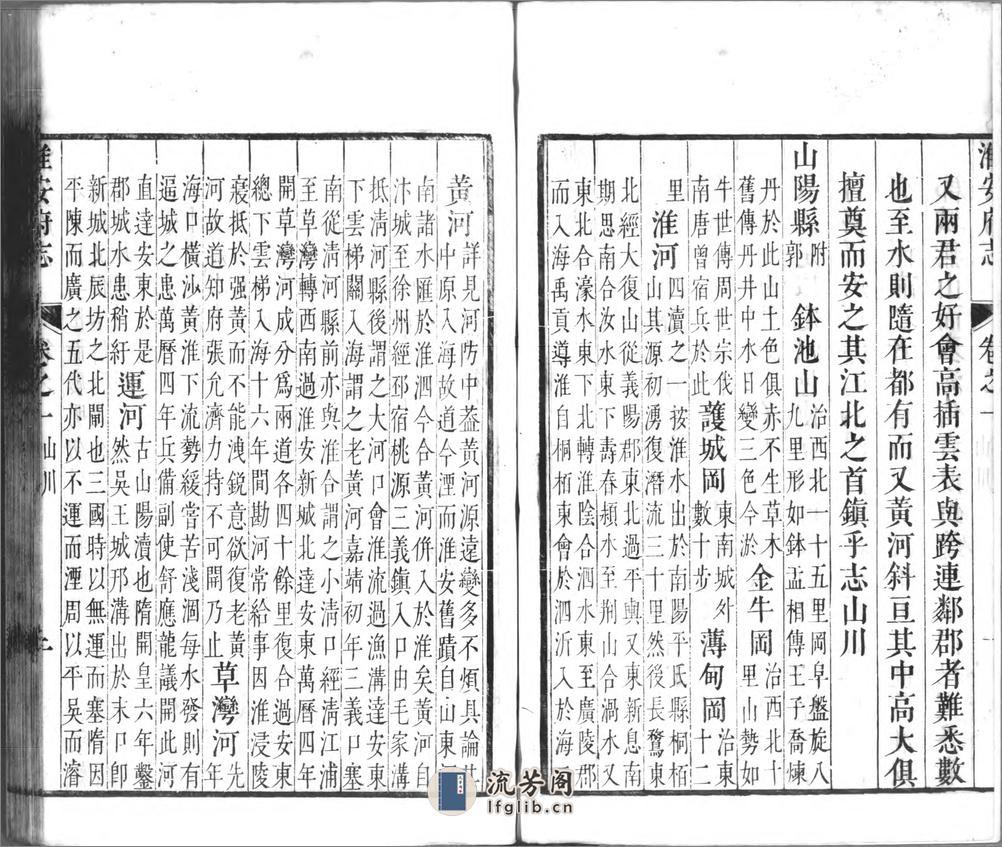 淮安府志 卷之一
又兩君之好會高插雲表與跨連鄰郡者難悉數
也至水則隨在都有而又黃河斜亘其中高大俱
擅奠而安之其江北之首鎮乎志山川
山陽縣附郭 鉢池山治西北一十五里岡阜盤旋八九里形如鉢盂相傳王子喬煉
丹於此山土色俱赤不生草木舊傳丹井中水日變三色今淤 金牛岡治西北十里山勢如
牛世傳周世宗與南唐曾宿兵於此 護城岡東南城外數十步 薄甸岡治東十二
里 淮河四瀆之一按淮水出於南陽平氏縣桐栢山其源初湧復潛流三十里然後長鶩東
北經大復山從義陽郡東北過平輿又東新息期思南合汝水東下壽春頓水北荆山合渦水
又東北合濠水東下北轉淮陰合泗水東至廣陵郡而入於海禹貢導淮自桐栢東會於泗沂入於海
黃河詳見河防中葢黃河源遠變多不煩具論其中原入海故道今湮而淮安舊蹟自山東
南諸水匯於淮泗今合黃河併入於淮矣黃河自汴城至徐州經邳宿桃源三義鎮入口由毛家溝
抵淸河縣後謂之大河口會淮流過漁溝達安東下雲梯關入海謂之老黃河嘉靖初年三義口塞
南從淸河縣前亦與淮合謂之小淸口經淸江浦至草灣轉西南過淮安新城北達安東萬曆四年
開草灣河成分爲兩道各四十餘里復合過安東總下雲梯入海十六年間勘河常給事因淮浸陵
寢抵於强黃而不能洩銳意欲復老黃河故道知府張允濟力持不可淺開乃止 草灣河先
海口橫沙黃河下流勢緩嘗苦淺涸每水發則有逼城之患萬曆四年兵備副使舒應龍議開此河
直達安東於是郡城水患稍紓 運河古山陽瀆也隋開皇六年鑿然吳王城邗溝出於末口卽
新城北辰坊之北閘也三國時以無運而塞隋因平陳而廣之五代亦以不運而湮周以平吳而濬
淮安府志 卷之一 山川 二
流芳阁
lfglib.cn